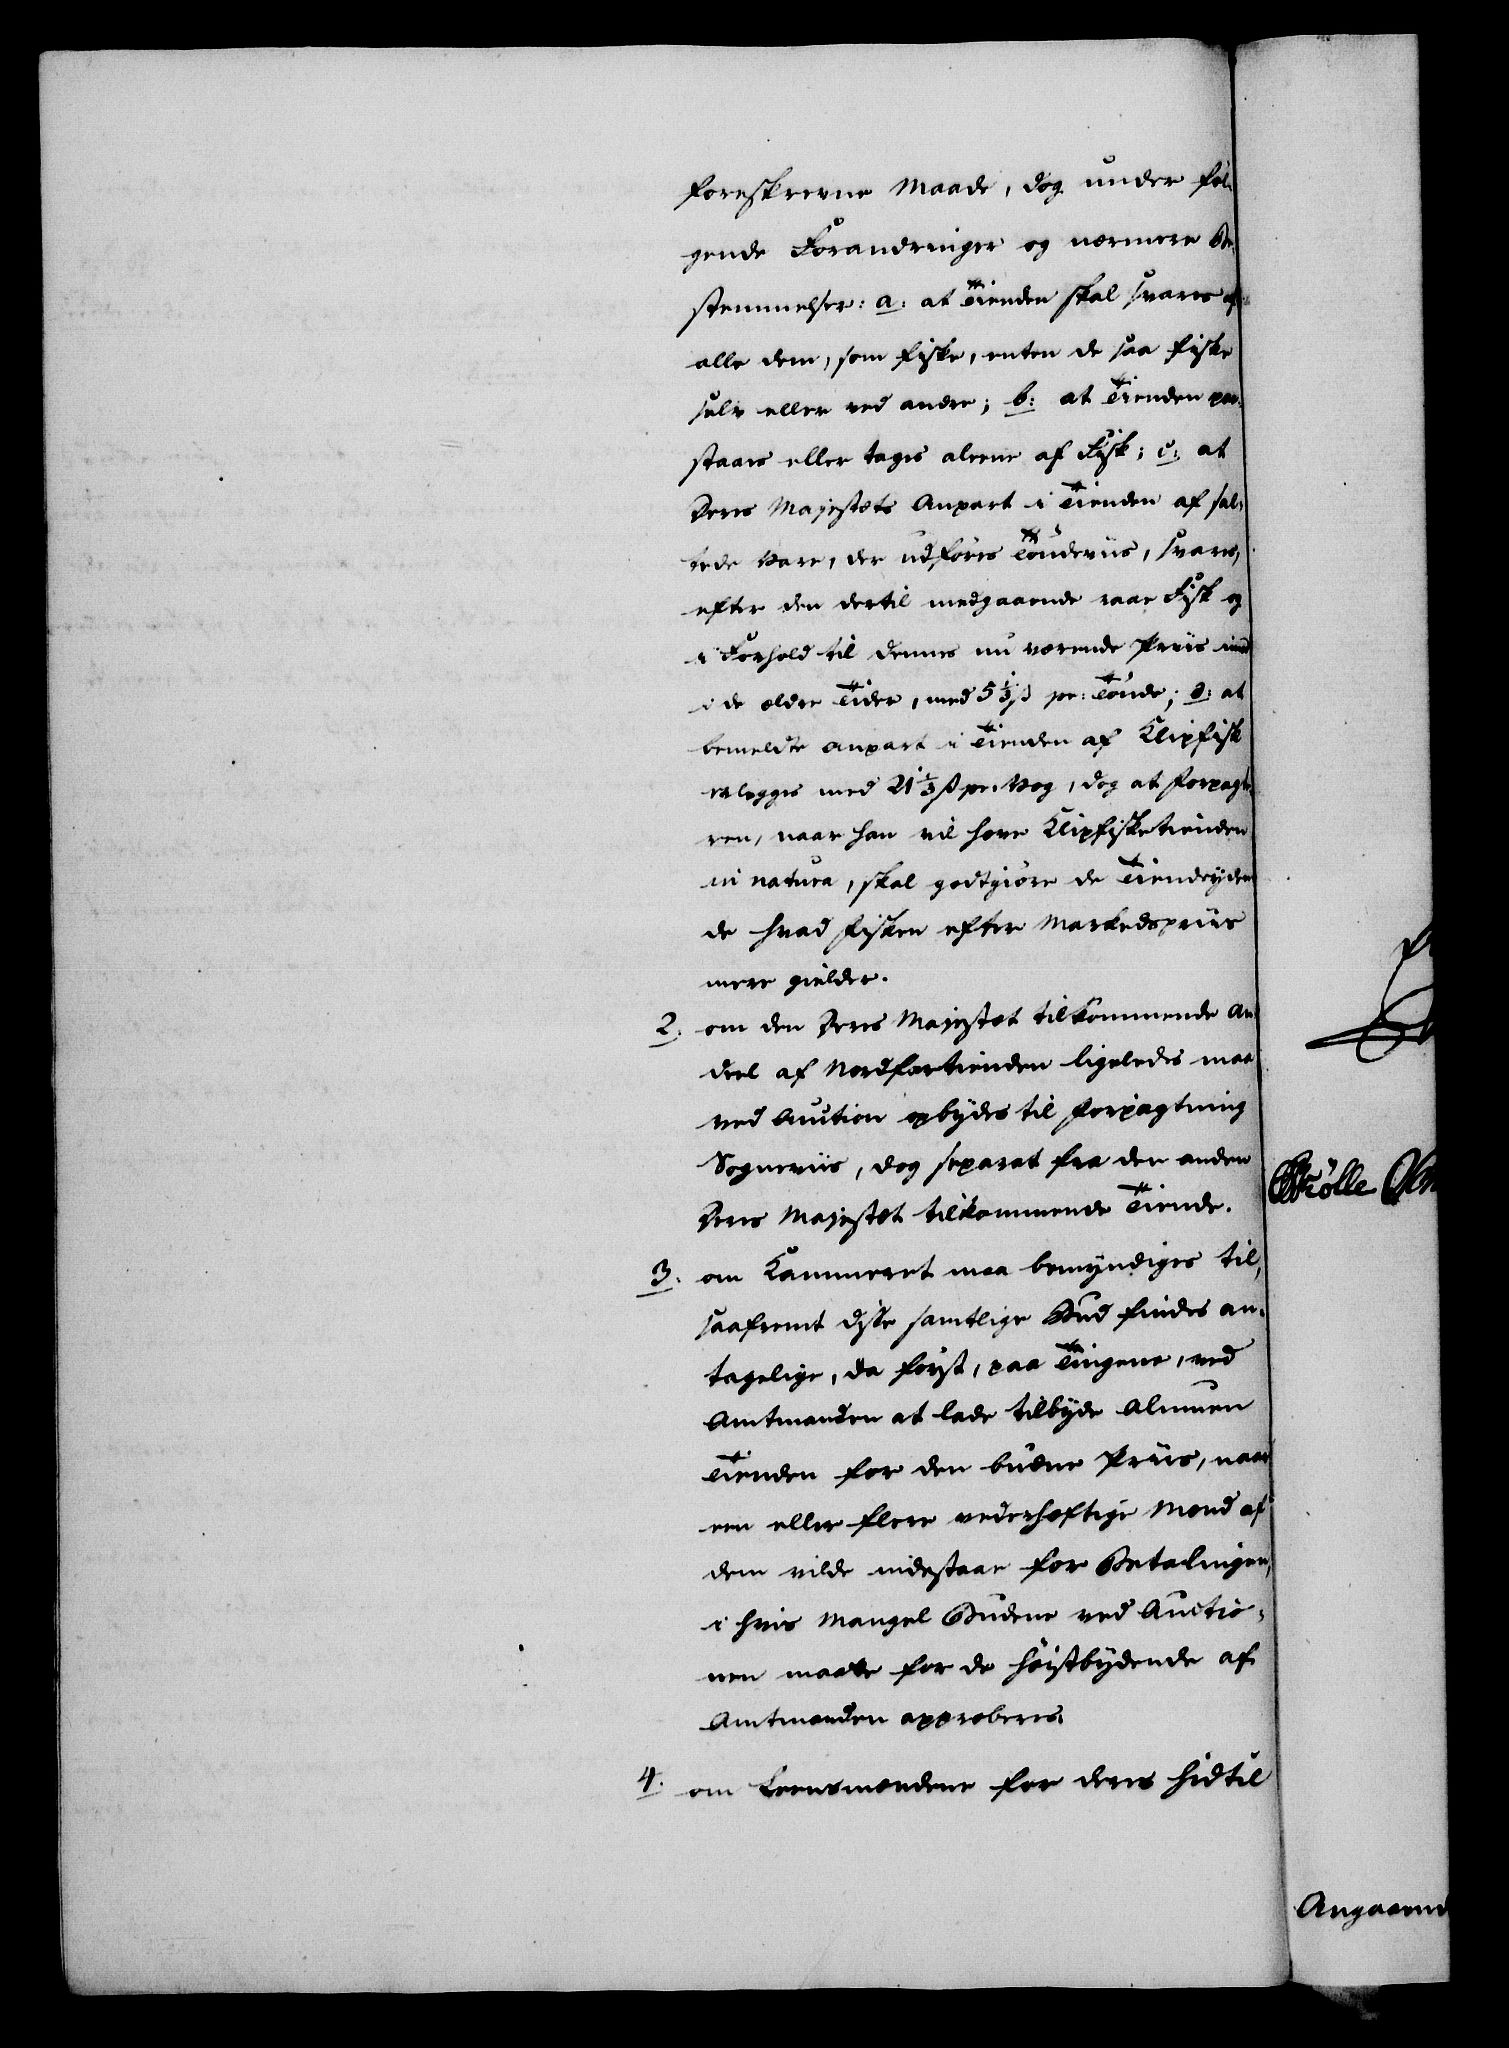 foreskrevne Maade, dog under føl-
gende Forandringer og nærmere Be-
stemmelser: a: at Tienden skal svares af
alle dem, som fiske, enten de saa fiske
selv eller ved andre; b: at Tienden
staaes eller tages aleene af Fisk; c: at
Deres Majestæts Anpart i Tienden af sal-
tede Vare, der udføres Tøndeviis, svares,
efter den dertil medgaaende raae Fisk og
i Forhold til dennes nu værende Priis imod
i de ældre Tider, med 5 1/3 ß pr: Tønde; d: at
bemeldte Anpart i Tienden af Klipfisk
erlegges med 21 1/3 ß pr. Vog, dog at Forpagte-
ren, naar han vil have Klipfisketienden
in natura, skal godtgiøre de Tiendeyden-
de hvad Fisken efter Markedspriis
mere gielder.
2. om den Deres Majestæt tilkommende An-
deel af Nordfartienden ligeledes maa
ved Auction opbydes til Forpagtning
Sogneviis, dog separat fra den anden
Deres Majestæt tilkommende Tiende.
3. om Kammeret maa bemyndiges til,
saafremt disse samtlige Bud findes an-
tagelige, da først, paa Tingene, ved
Amtmanden at lade tilbyde Almuen
Tienden for den budne Priis, naar
een eller flere vederhæftige Mænd af
dem vilde indestaae for Betalingen,
i hvis Mangel Budene ved Auctio-
nen maatte for de høistbydende af
Amtmanden approberes.
4. om Leensmændene for deres hidtil
Trölle
Angaaend